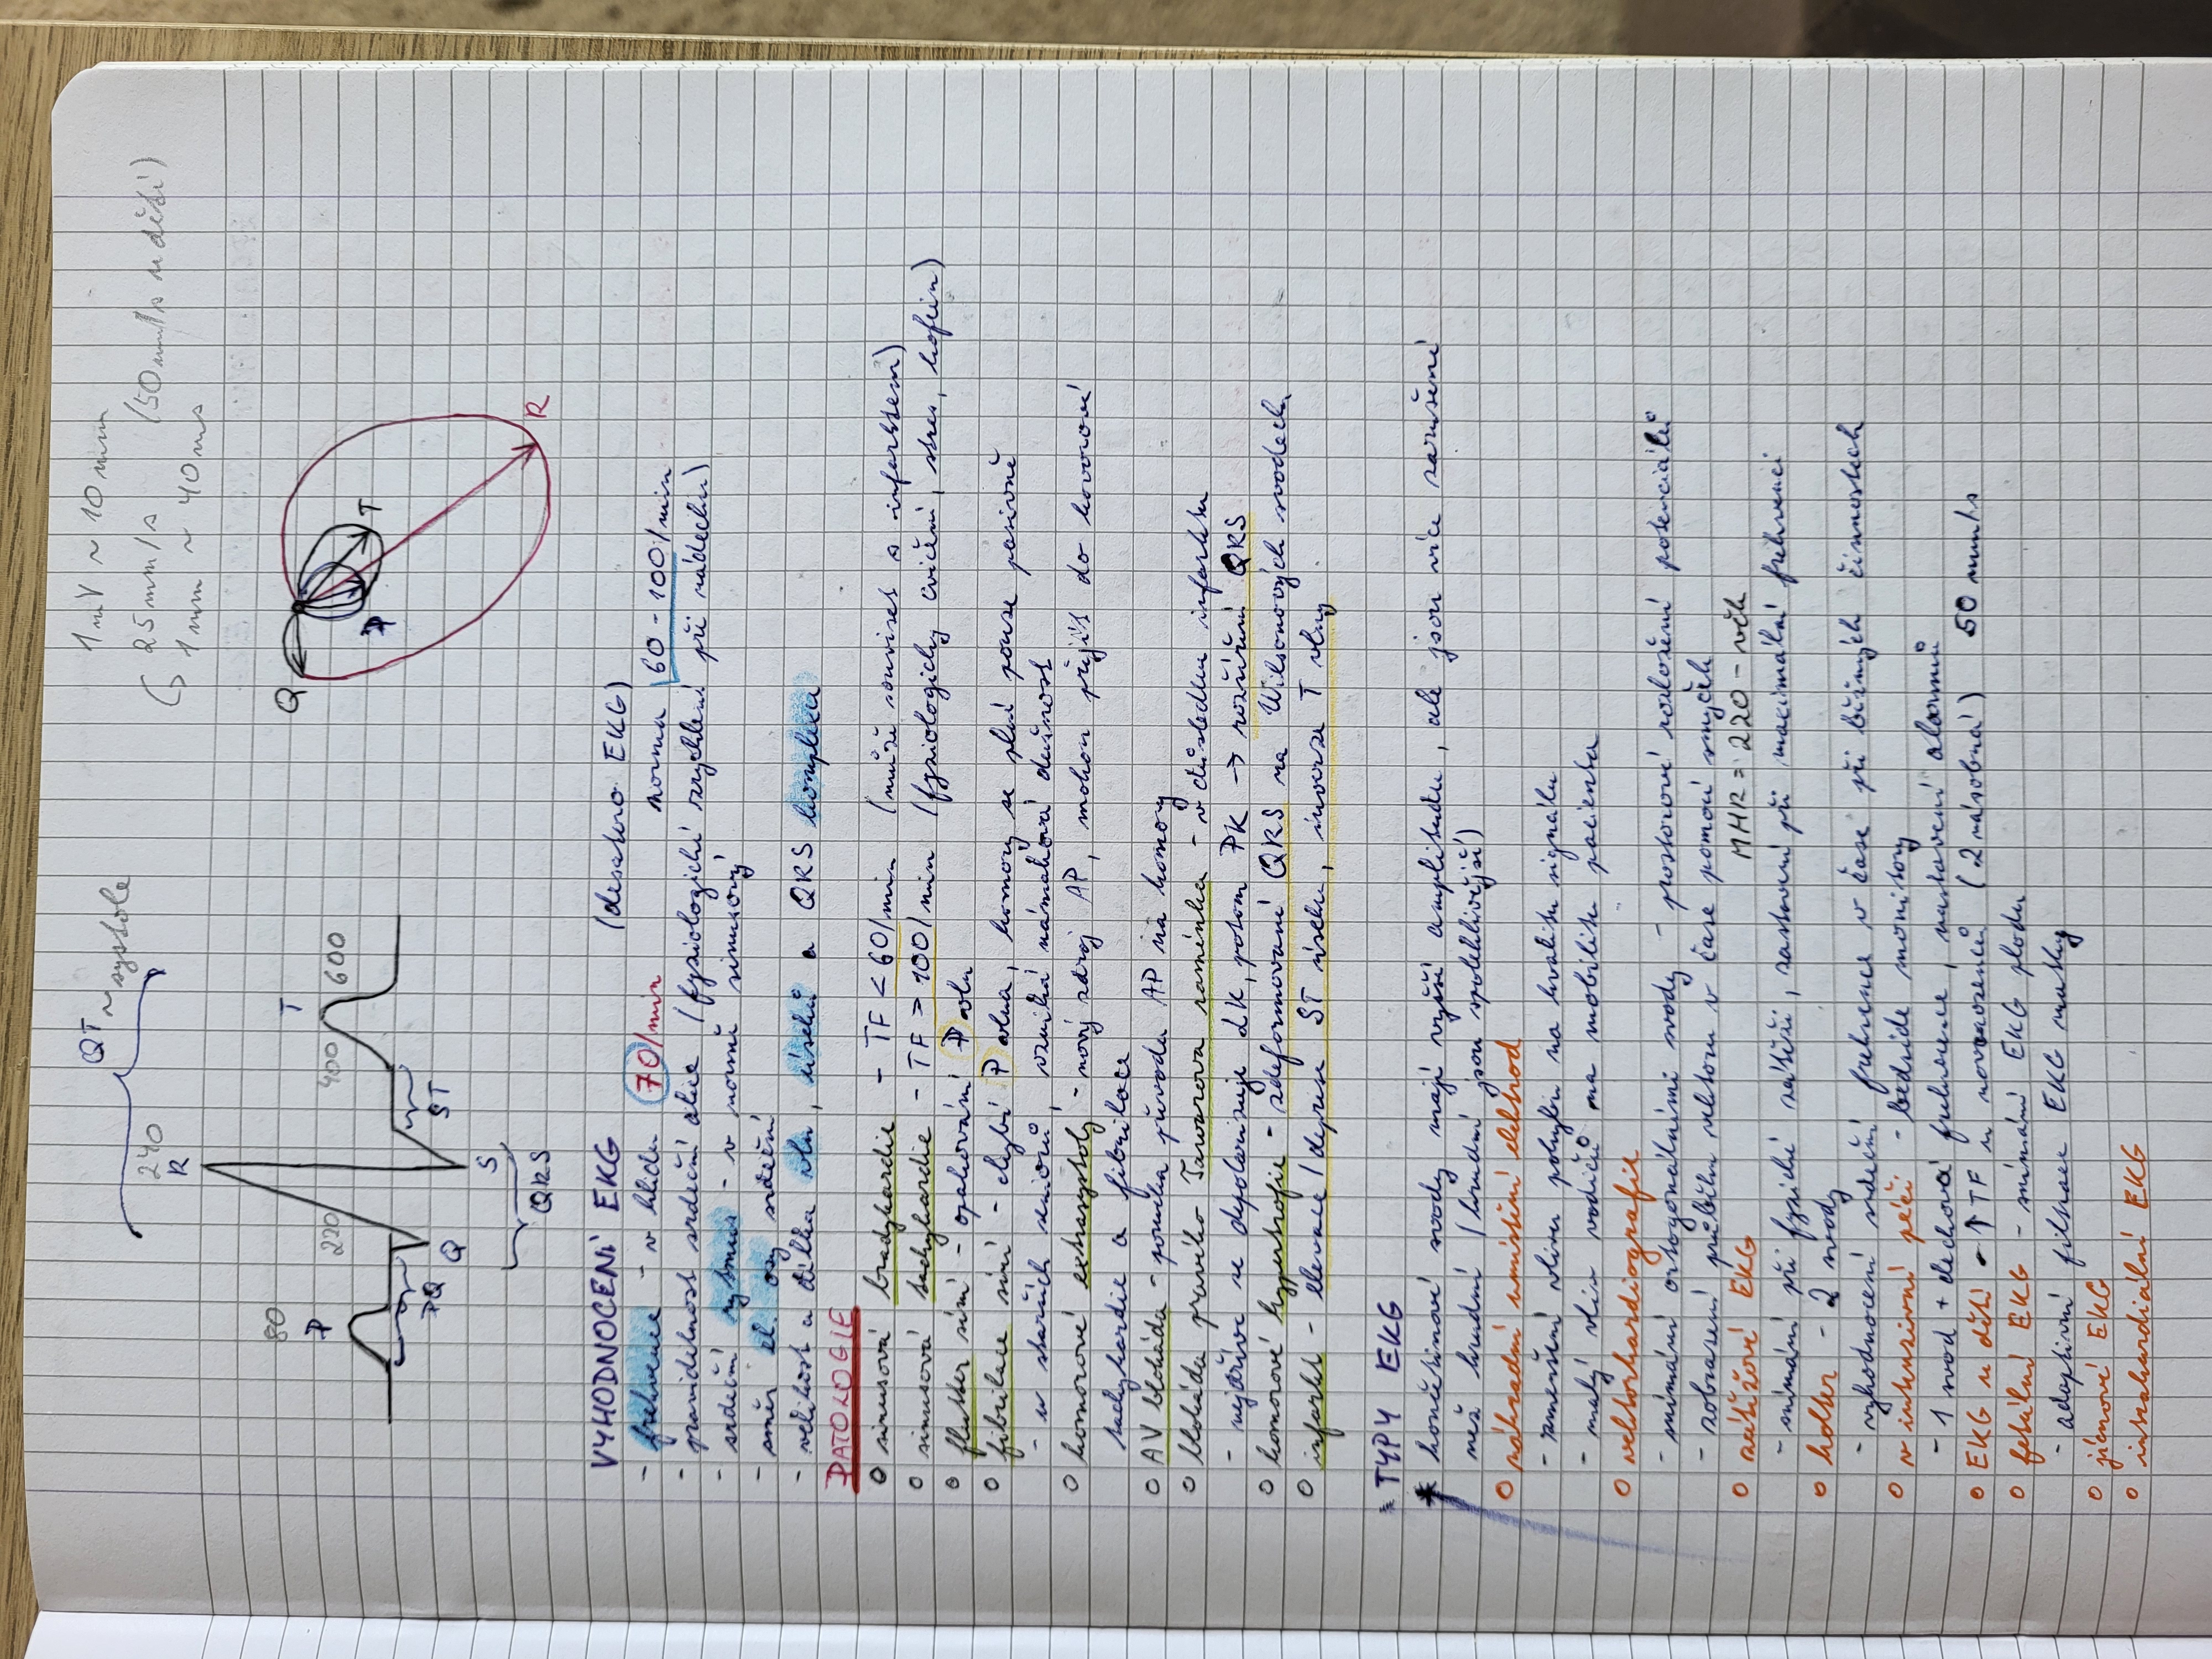 QT ~ systole
1 mV ~ 10 mm
25 mm/s (50 mm/s u dětí)
1 mm ~ 40 ms
240
R
80
P
220
400
T
600
PQ
Q
ST
S
QRS
Q
P
T
R
VYHODNOCENÍ EKG (desatero EKG)
- frekvence - v klidu 70/min norma 60 - 100/min
- pravidelnost srdeční akce (fyziologické zrychlení při nádechu)
- srdeční rytmus - v normě sinusový
- směr el. osy srdeční
- velikost a délka vln, úseků a QRS komplexu
PATOLOGIE
o sinusová bradykardie - TF < 60/min (může souviset s infarktem)
o sinusová tachykardie - TF > 100/min (fyziologicky cvičení, stres, kofein)
o flutter síní - opakování P vln
o fibrilace síní - chybí P vlna, komory se plní pouze pasivně
- u starších seniorů, vzniká námahová dušnost
o komorové extrasystoly - nový zdroj AP, mohou přejít do kovorové
tachykardie a fibrilace
o AV blokáda - porucha převodu AP na komory
o blokáda pravého Tawarova raménka - v důsledku infarktu
- nejdříve se depolarizuje LK, potom PK → rozšíření QRS
o komorové hypertrofie - zdeformované QRS na Wilsonových svodech
o infarkt - elevace / deprese ST úseku, inverze T vlny
TYPY EKG
* končetinové svody mají vyšší amplitudu, ale jsou více zarušené
než hrudní (hrudní jsou spolehlivější)
o náhradní umístění elektrod
- zmenšení vlivu pohybu na kvalitu signálu
- malý vliv vodičů na mobilitu pacienta
o vektorkardiografie
- snímání ortogonálními svody - prostorové rozložení potenciálů
- zobrazení průběhu vektoru v čase pomocí smyček
o zátěžové EKG MHR = 220 - věk
- snímání při fyzické zátěži, zastavení při maximální frekvenci
o holter - 2 svody
- vyhodnocení srdeční frekvence v čase při běžných činnostech
o v intenzivní péči - bedside monitory
- 1 svod + dechová frekvence, nastavení alarmů
o EKG u dětí - ↑ TF u novorozenců (2 násobná) 50 mm/s
o fetální EKG - snímání EKG plodu
- adaptivní filtrace EKG matky
o jícnové EKG
o intrakardiální EKG